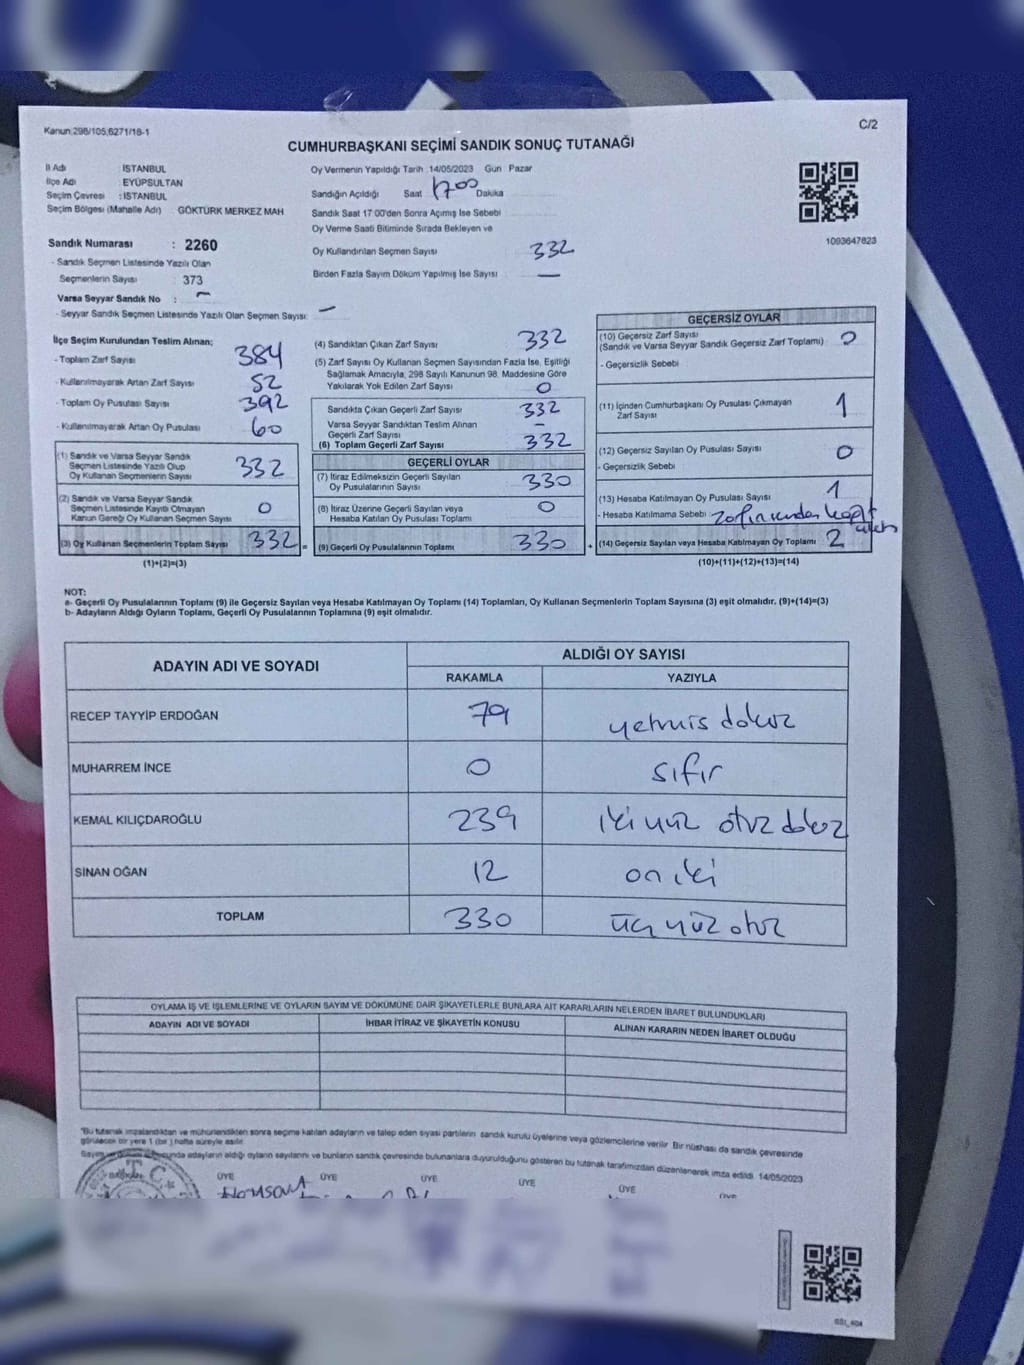 Kanun:298/105,6271/18-1
C/2
CUMHURBAŞKANI SEÇİMİ SANDIK SONUÇ TUTANAĞI
İl Adı : İSTANBUL
İlçe Adı : EYÜPSULTAN
Seçim Çevresi : İSTANBUL
Seçim Bölgesi (Mahalle Adı) GÖKTÜRK MERKEZ MAH
Sandık Numarası : 2260
- Sandık Seçmen Listesinde Yazılı Olan
Seçmenlerin Sayısı : 373
Varsa Seyyar Sandık No : -
- Seyyar Sandık Seçmen Listesinde Yazılı Olan Seçmen Sayısı: -
Oy Vermenin Yapıldığı Tarih 14/05/2023 Gün Pazar
Sandığın Açıldığı Saat 17 00 Dakika
Sandık Saat 17:00'den Sonra Açımış İse Sebebi
Oy Verme Saati Bitiminde Sırada Bekleyen ve
Oy Kullandırılan Seçmen Sayısı 332
Birden Fazla Sayım Döküm Yapılmış İse Sayısı -
1093647823
İlçe Seçim Kurulundan Teslim Alınan;
- Toplam Zarf Sayısı 384
- Kullanılmayarak Artan Zarf Sayısı 52
- Toplam Oy Pusulası Sayısı 392
- Kullanılmayarak Artan Oy Pusulası 60
(1) Sandık ve Varsa Seyyar Sandık
Seçmen Listesinde Yazılı Olup
Oy Kullanan Seçmenlerin Sayısı 332
(2) Sandık ve Varsa Seyyar Sandık
Seçmen Listesinde Kayıtlı Olmayan
Kanun Gereği Oy Kullanan Seçmen Sayısı 0
(3) Oy Kullanan Seçmenlerin Toplam Sayısı 332 =
(1)+(2)=(3)
(4) Sandıktan Çıkan Zarf Sayısı 332
(5) Zarf Sayısı Oy Kullanan Seçmen Sayısından Fazla İse, Eşitliği
Sağlamak Amacıyla, 298 Sayılı Kanunun 98. Maddesine Göre
Yakılarak Yok Edilen Zarf Sayısı 0
Sandıkta Çıkan Geçerli Zarf Sayısı 332
Varsa Seyyar Sandıktan Teslim Alınan
Geçerli Zarf Sayısı -
(6) Toplam Geçerli Zarf Sayısı 332
GEÇERLİ OYLAR
(7) İtiraz Edilmeksizin Geçerli Sayılan
Oy Pusulalarının Sayısı 330
(8) İtiraz Üzerine Geçerli Sayılan veya
Hesaba Katılan Oy Pusulası Toplamı 0
(9) Geçerli Oy Pusulalarının Toplamı 330 +
GEÇERSİZ OYLAR
(10) Geçersiz Zarf Sayısı
(Sandık ve Varsa Seyyar Sandık Geçersiz Zarf Toplamı) 0
- Geçersizlik Sebebi
(11) İçinden Cumhurbaşkanı Oy Pusulası Çıkmayan
Zarf Sayısı 1
(12) Geçersiz Sayılan Oy Pusulası Sayısı 0
- Geçersizlik Sebebi
(13) Hesaba Katılmayan Oy Pusulası Sayısı 1
- Hesaba Katılmama Sebebi
(14) Geçersiz Sayılan veya Hesaba Katılmayan Oy Toplamı 2
(10)+(11)+(12)+(13)=(14)
NOT:
a- Geçerli Oy Pusulalarının Toplamı (9) ile Geçersiz Sayılan veya Hesaba Katılmayan Oy Toplamı (14) Toplamları, Oy Kullanan Seçmenlerin Toplam Sayısına (3) eşit olmalıdır. (9)+(14)=(3)
b- Adayların Aldığı Oyların Toplamı, Geçerli Oy Pusulalarının Toplamına (9) eşit olmalıdır.
ADAYIN ADI VE SOYADI
ALDIĞI OY SAYISI
RAKAMLA YAZIYLA
RECEP TAYYİP ERDOĞAN 79 yetmis dokuz
MUHARREM İNCE 0 sıfır
KEMAL KILIÇDAROĞLU 239 iki yüz otuz dokuz
SİNAN OĞAN 12 on iki
TOPLAM 330 üç yüz otuz
OYLAMA İŞ VE İŞLEMLERİNE VE OYLARIN SAYIM VE DÖKÜMÜNE DAİR ŞİKAYETLERLE BUNLARA AİT KARARLARIN NELERDEN İBARET BULUNDUKLARI
ADAYIN ADI VE SOYADI İHBAR İTİRAZ VE ŞİKAYETİN KONUSU ALINAN KARARIN NEDEN İBARET OLDUĞU
*Bu tutanak imzalandıktan ve mühürlendikten sonra seçime katılan adayların ve talep eden siyasi partilerin sandık kurulu üyelerine veya gözlemcilerine verilir. Bir nüshası da sandık çevresinde
görülecek bir yere 1 (bir) hafta süreyle asılır.
adayların aldığı oyların sayılarını ve bunların sandık çevresinde bulunanlara duyurulduğunu gösteren bu tutanak tarafımızdan düzenlenerek imza edildi. 14/05/2023
T.C.
ÜYE ÜYE ÜYE ÜYE ÜYE ÜYE